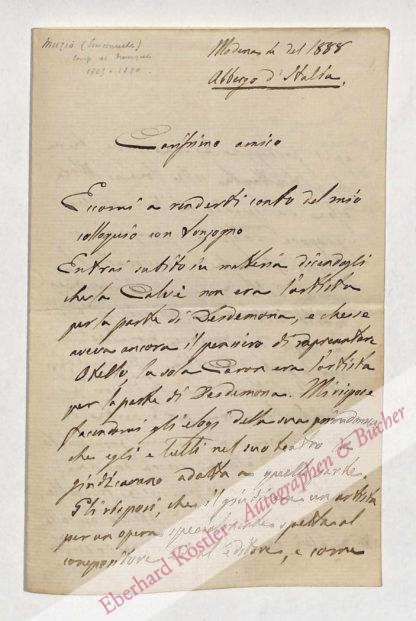 Muzio (Emanuele)
Modena 4 del 1888
Albergo d'Italia.
Carissimo amico
Eccomi a renderti conto del mio
colloquio con Sonzogno
Entrai subito in materia dicendogli
che la Calvé non era l'artista
per la parte di Desdemona, e che se
aveva ancora il pensiero di rappresentare
Otello, la sola Caron era l'artista
per la parte di Desdemona. Mi rispose
facendomi gli elogi della sua
che egli e tutti nel suo teatro
giudicavano adatta a quella parte.
Gli risposi, che il giudicare un artista
per un'opera spetta al
compositore ed editore, e come
Eberhard Köstler - Autographen & Bücher